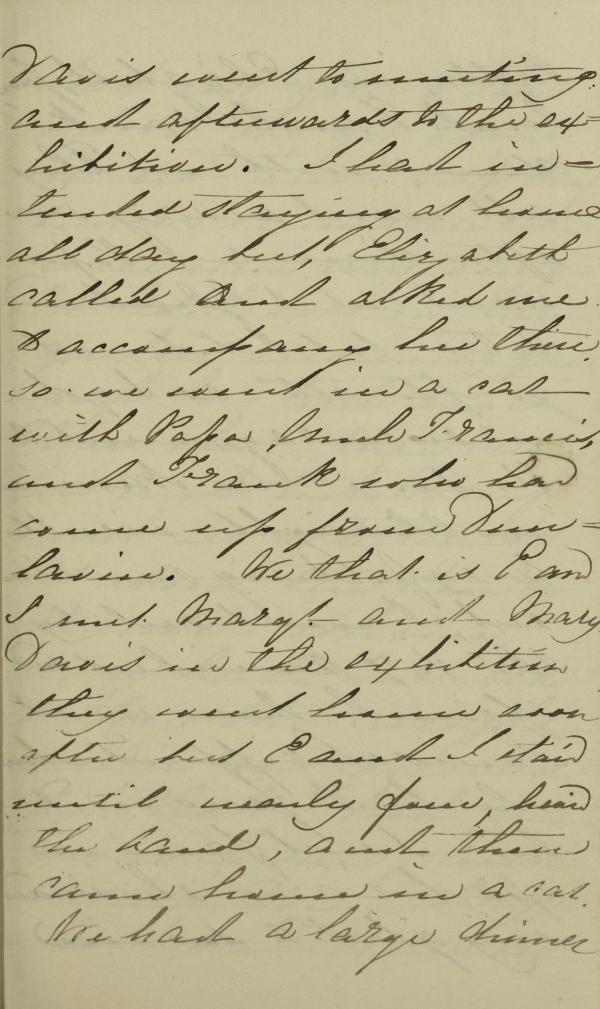 Davis went to meeting
and afterwards to the ex=
hibition. I had in=
tended staying at home
all day but, Elizabeth
called and asked me
to accompany her there
so we went in a car
with Papa, Uncle Francis,
and Frank who had
come up from Dun=
lavin. We that is E and
I met Margt. and Mary
Davis in the exhibition
they went home soon
after but E and I staid
until nearly four, heard
the band, and then
came home in a car.
We had a large dinner